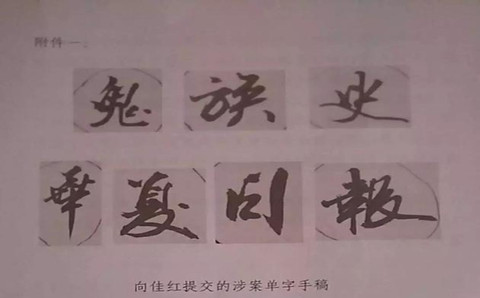 附件一：
鬼族史
華夏日報
向佳红提交的涉案单字手稿